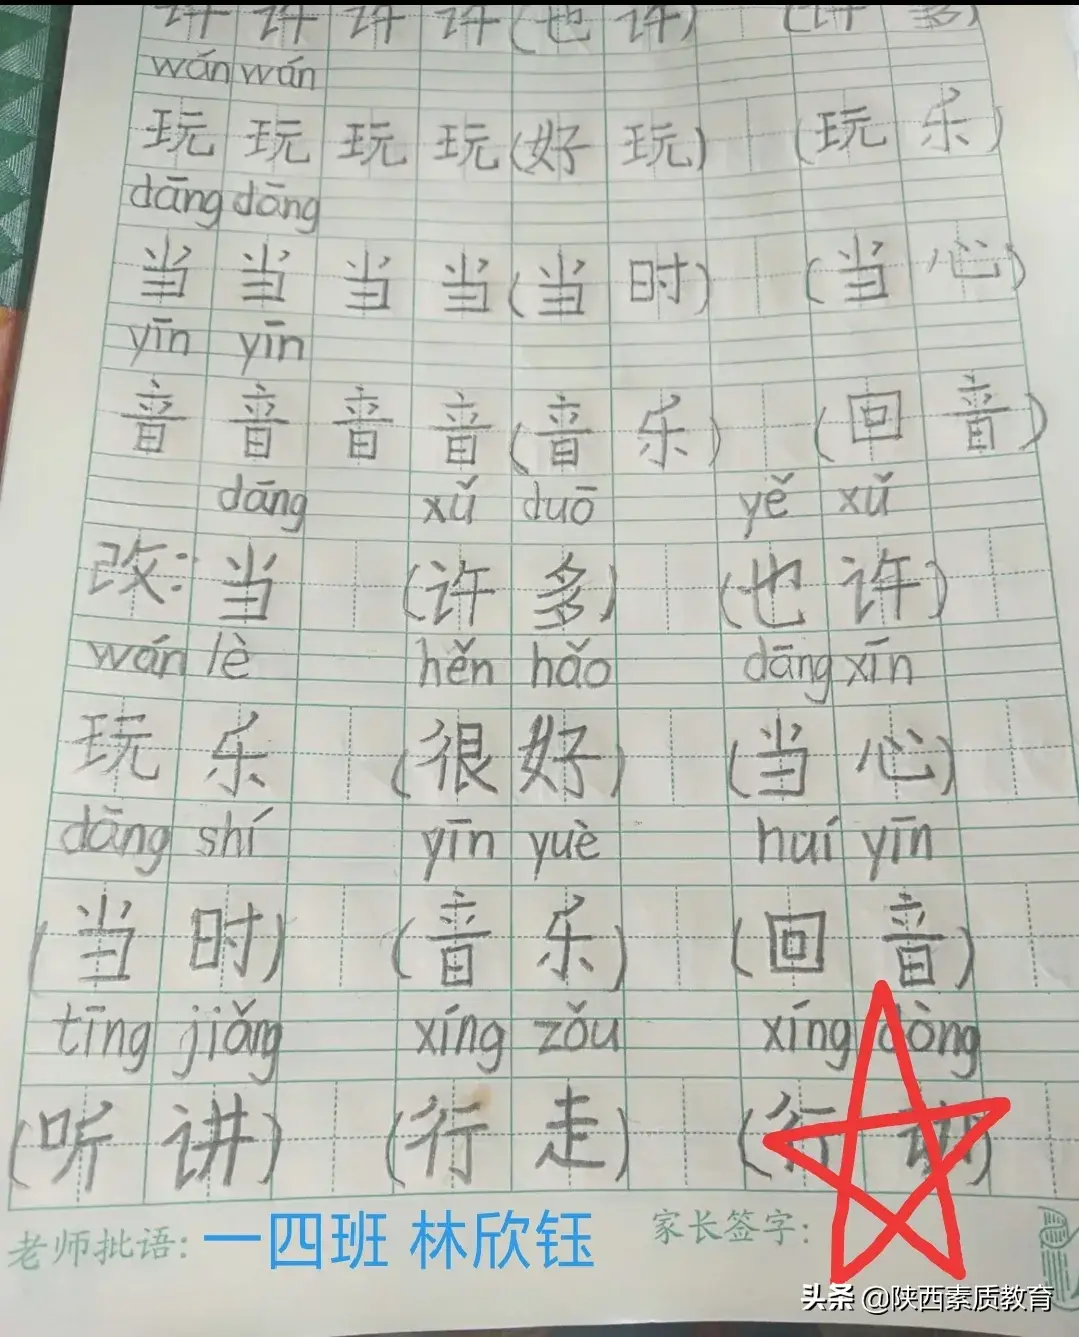 许 许 许 许 (也 许) (许 多)
wán wán
玩 玩 玩 玩 (好 玩) (玩 乐)
dāng dāng
当 当 当 当 (当 时) (当 心)
yīn yīn
音 音 音 音 (音 乐) (回 音)
dāng xǔ duō yě xǔ
改: 当 (许 多) (也 许)
wán lè hěn hǎo dāng xīn
玩 乐 (很 好) (当 心)
dāng shí yīn yuè huí yīn
(当 时) (音 乐) (回 音)
tīng jiǎng xíng zǒu xíng dòng
(听 讲) (行 走) (行 动)
老师批语: 一四班 林欣钰 家长签字:
头条 @陕西素质教育